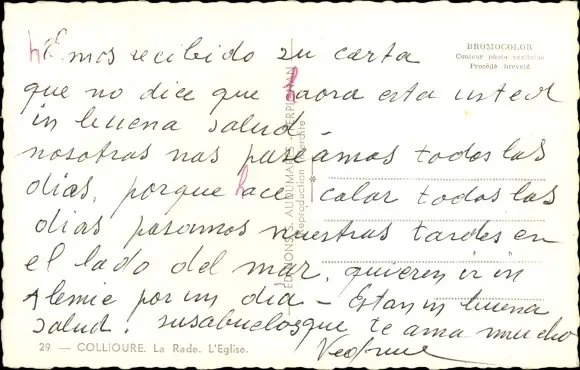 BROMOCOLOR
Couleur photo véritable
Procédé breveté
hEmos recibido su carta
que no dice que haora esta usted
in buena salud -
nosotros nos paseamos todos las
dias, porque hace calor todos las
dias pasamos nuestras tardes en
el lado del mar, quieren ir in
por un dia - Estan in buena
salud. susabuelosque te ama mucho
EDITIONS S. AUDUMARES - PERPIGNAN
Reproduction interdite
29 — COLLIOURE. La Rade. L'Eglise.